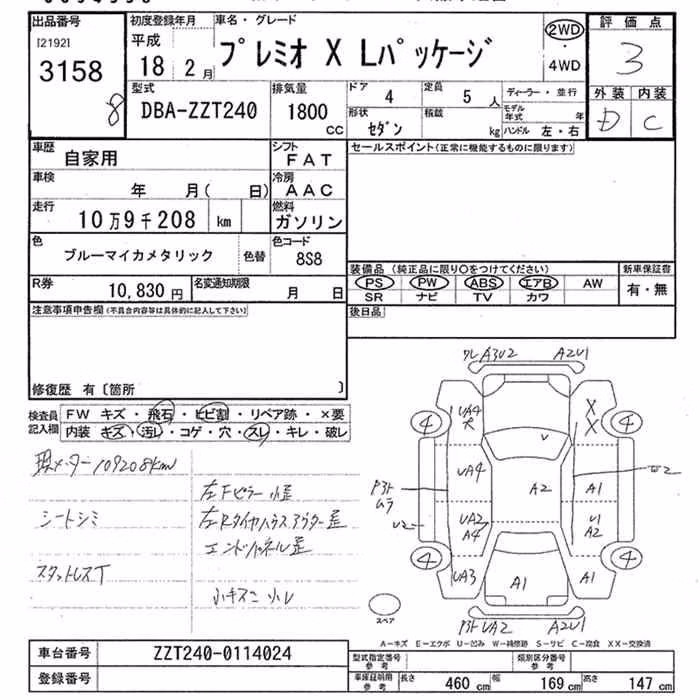 出品番号 初度登録年月 車名・グレード 2WD 評価点
[2192] 平成 プレミオ X Lパッケージ ・ 3
3158 18年 2月 4WD 外装 内装
8 型式 排気量 ドア 4 定員 5人 ディーラー・並行 D C
DBA-ZZT240 1800cc 形状 セダン 積載 kg モデル年式 年
ハンドル 左・右
車歴 自家用 シフト FAT セールスポイント(正常に機能するものに限ります)
車検 年 月( 日) 冷房 AAC
走行 10万9千208 km 燃料 ガソリン
色 ブルーマイカメタリック 色替 色コード 8S8
装備品(純正品に限り○をつけてください) 新車保証書
PS PW ABS エアB AW 有・無
SR ナビ TV カワ
R券 10,830円 名変通知期限 月 日
後日品
注意事項申告欄(不具合内容等は具体的に記入して下さい)
修復歴 有〔箇所 〕
検査員記入欄 FW キズ・飛石・ヒビ割・リペア跡・×要
内装 キズ・汚レ・コゲ・穴・スレ・キレ・破レ
現メーター109208km
左Fピラー小歪
シートシミ 左Rタイヤハウスアウター歪
エンドパネル歪
スタットレスT
小キズ 小凹
ワレA3U2 A2U1
4 UA4 X X 4
V
UA4 A2 A1
P3トムラ
U2 UA2 A4 U1 A2
4 UA3 A1 A1 4
スペア P3トUA2 A2U1
A-キズ E-エクボ U-凹み W-補修跡 S-サビ C-腐食 XX-交換済
車台番号 ZZT240-0114024
型式指定番号 参考 類別区分番号 参考
登録番号
車庫証明用参考 長さ 460cm 幅 169cm 高さ 147cm